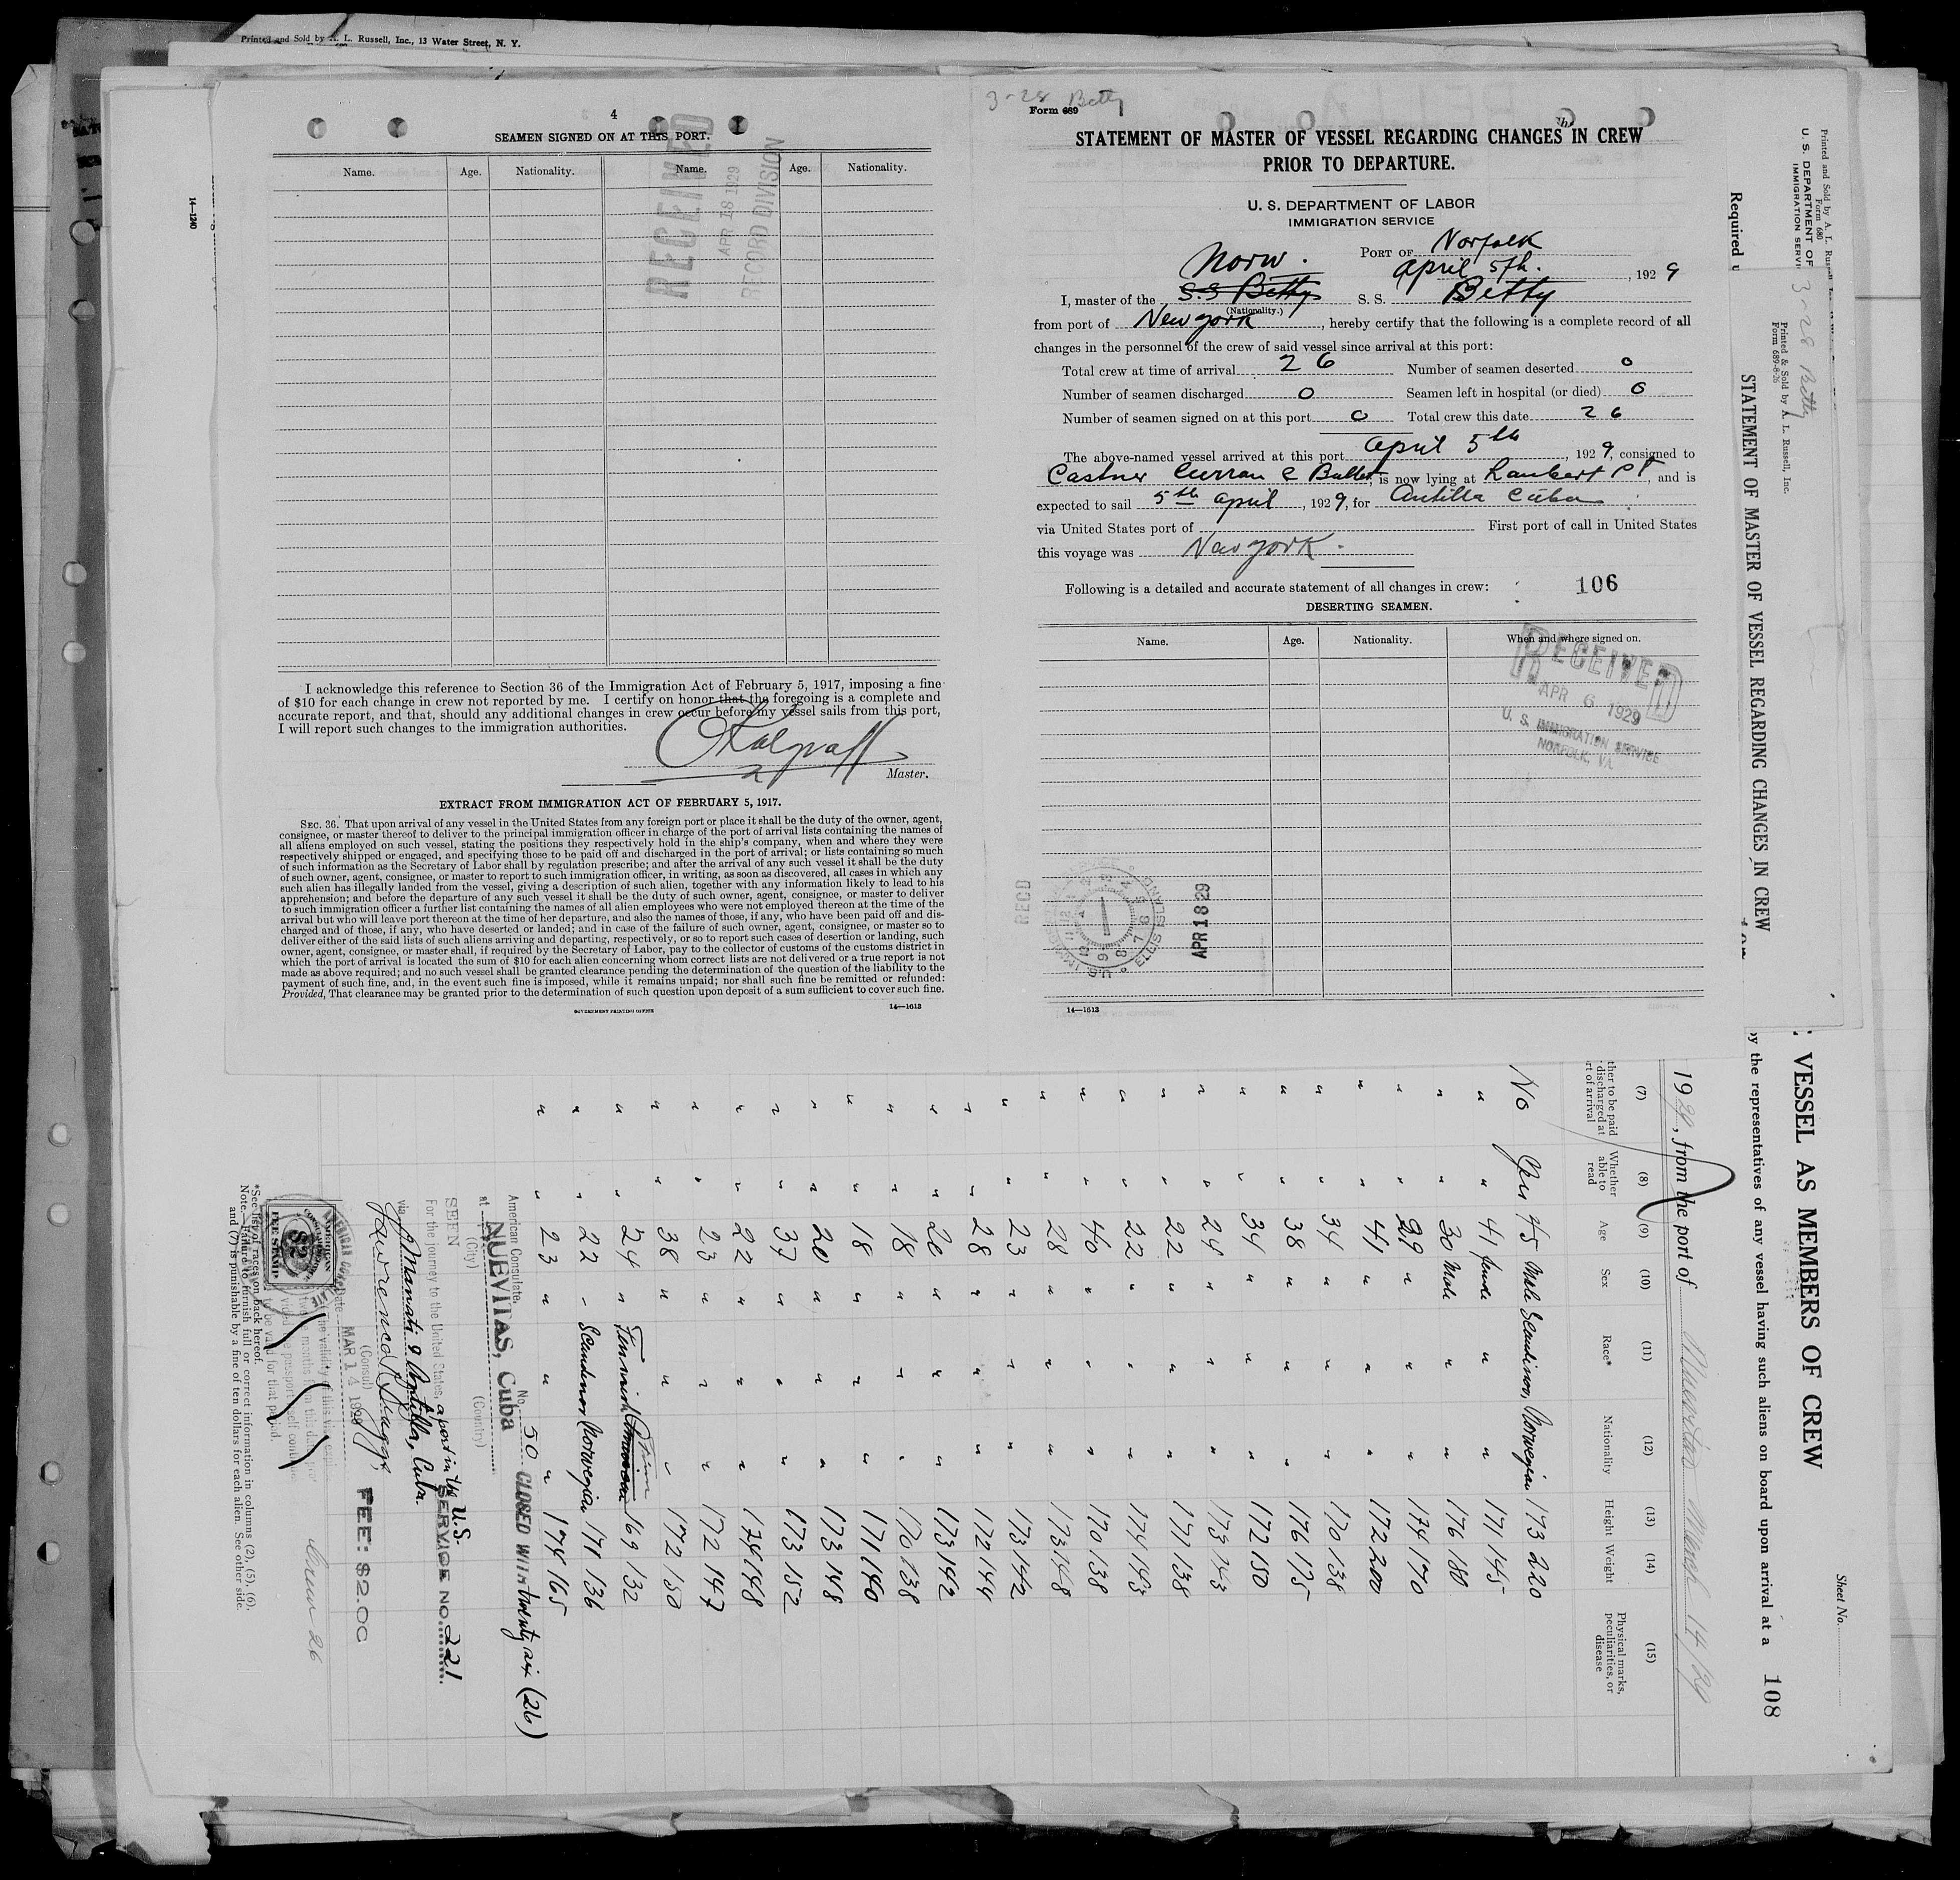 Printed and Sold by A. L. Russell, Inc., 13 Water Street, N. Y.
4
SEAMEN SIGNED ON AT THIS PORT.
Name. Age. Nationality. Name. Age. Nationality.
RECEIVED
APR 18 1929
RECORD DIVISION
14—1240
I acknowledge this reference to Section 36 of the Immigration Act of February 5, 1917, imposing a fine
of $10 for each change in crew not reported by me. I certify on honor that the foregoing is a complete and
accurate report, and that, should any additional changes in crew occur before my vessel sails from this port,
I will report such changes to the immigration authorities.
Master.
EXTRACT FROM IMMIGRATION ACT OF FEBRUARY 5, 1917.
SEC. 36. That upon arrival of any vessel in the United States from any foreign port or place it shall be the duty of the owner, agent,
consignee, or master thereof to deliver to the principal immigration officer in charge of the port of arrival lists containing the names of
all aliens employed on such vessel, stating the positions they respectively hold in the ship's company, when and where they were
respectively shipped or engaged, and specifying those to be paid off and discharged in the port of arrival; or lists containing so much
of such information as the Secretary of Labor shall by regulation prescribe; and after the arrival of any such vessel it shall be the duty
of such owner, agent, consignee, or master to report to such immigration officer, in writing, as soon as discovered, all cases in which any
such alien has illegally landed from the vessel, giving a description of such alien, together with any information likely to lead to his
apprehension; and before the departure of any such vessel it shall be the duty of such owner, agent, consignee, or master to deliver
to such immigration officer a further list containing the names of all alien employees who were not employed thereon at the time of the
arrival but who will leave port thereon at the time of her departure, and also the names of those, if any, who have been paid off and dis-
charged and of those, if any, who have deserted or landed; and in case of the failure of such owner, agent, consignee, or master so to
deliver either of the said lists of such aliens arriving and departing, respectively, or so to report such cases of desertion or landing, such
owner, agent, consignee, or master shall, if required by the Secretary of Labor, pay to the collector of customs of the customs district in
which the port of arrival is located the sum of $10 for each alien concerning whom correct lists are not delivered or a true report is not
made as above required; and no such vessel shall be granted clearance pending the determination of the question of the liability to the
payment of such fine, and, in the event such fine is imposed, while it remains unpaid; nor shall such fine be remitted or refunded:
Provided, That clearance may be granted prior to the determination of such question upon deposit of a sum sufficient to cover such fine.
GOVERNMENT PRINTING OFFICE 14—1613
3-28 Betty
Form 689
STATEMENT OF MASTER OF VESSEL REGARDING CHANGES IN CREW
PRIOR TO DEPARTURE.
U. S. DEPARTMENT OF LABOR
IMMIGRATION SERVICE
PORT OF Norfolk
Norw. April 5th. , 1929
I, master of the S.S Betty S. S. Betty
(Nationality.)
from port of New york, hereby certify that the following is a complete record of all
changes in the personnel of the crew of said vessel since arrival at this port:
Total crew at time of arrival 26 Number of seamen deserted 0
Number of seamen discharged 0 Seamen left in hospital (or died) 0
Number of seamen signed on at this port 0 Total crew this date 26
The above-named vessel arrived at this port April 5th, 1929, consigned to
Castner Curran & Bullet, is now lying at Lambert Pt, and is
expected to sail 5th April, 1929, for Antilla Cuba
via United States port of First port of call in United States
this voyage was New york.
Following is a detailed and accurate statement of all changes in crew: 106
DESERTING SEAMEN.
Name. Age. Nationality. When and where signed on.
RECEIVED
APR 6 1929
U. S. IMMIGRATION SERVICE
NORFOLK, VA
RECD
ELLIS ISLAND
APR 18 29
14—1613
Printed and Sold by A. L. Russ
Form 680
U. S. DEPARTMENT OF
IMMIGRATION SERVI
3-28 Betty
Printed & Sold by A. L. Russell, Inc.
Form 689-8-26
Required u
STATEMENT OF MASTER OF VESSEL REGARDING CHANGES IN CREW
Sheet No.
VESSEL AS MEMBERS OF CREW
by the representatives of any vessel having such aliens on board upon arrival at a 108
1929, from the port of Nuevitas March 14/29
(7) (8) (9) (10) (11) (12) (13) (14) (15)
ther to be paid discharged at rt of arrival
Whether able to read
Age
Sex
Race*
Nationality
Height
Weight
Physical marks, peculiarities, or disease
No Yes 45 Male Scandinav. Norwegian 173 220
" " 41 female " " 171 145
" " 30 Male " " 176 180
" " 29 " " " 174 170
" " 41 " " " 172 200
" " 34 " " " 170 138
" " 38 " " " 176 175
" " 34 " " " 172 150
" " 24 " " " 173 143
" " 22 " " " 171 138
" " 22 " " " 174 143
" " 40 " " " 170 138
" " 28 " " " 173 148
" " 23 " " " 173 142
" " 28 " " " 172 144
" " 20 " " " 173 142
" " 18 " " " 170 138
" " 18 " " " 171 140
" " 20 " " " 173 148
" " 37 " " " 173 152
" " 22 " " " 174 148
" " 23 " " " 172 147
" " 38 " " " 172 150
" " 24 " Finnish 169 132
" " 22 " Scandnav Norwegian 171 136
" " 23 " " " 174 165
American Consulate, No. 50 CLOSED WITH twenty six (26)
at NUEVITAS, Cuba
(City) (Country)
SEEN
For the journey to the United States, a port in the U.S.
SERVICE NO. 221
via Manati & Antilla, Cuba.
(Consul)
Date MAR 14 1929 FEE: $2.00
AMERICAN
$2
FEE STAMP
Crew 26
*See list of races on back hereof.
Note.—Failure to furnish full or correct information in columns (2), (5), (6),
and (7) is punishable by a fine of ten dollars for each alien. See other side.